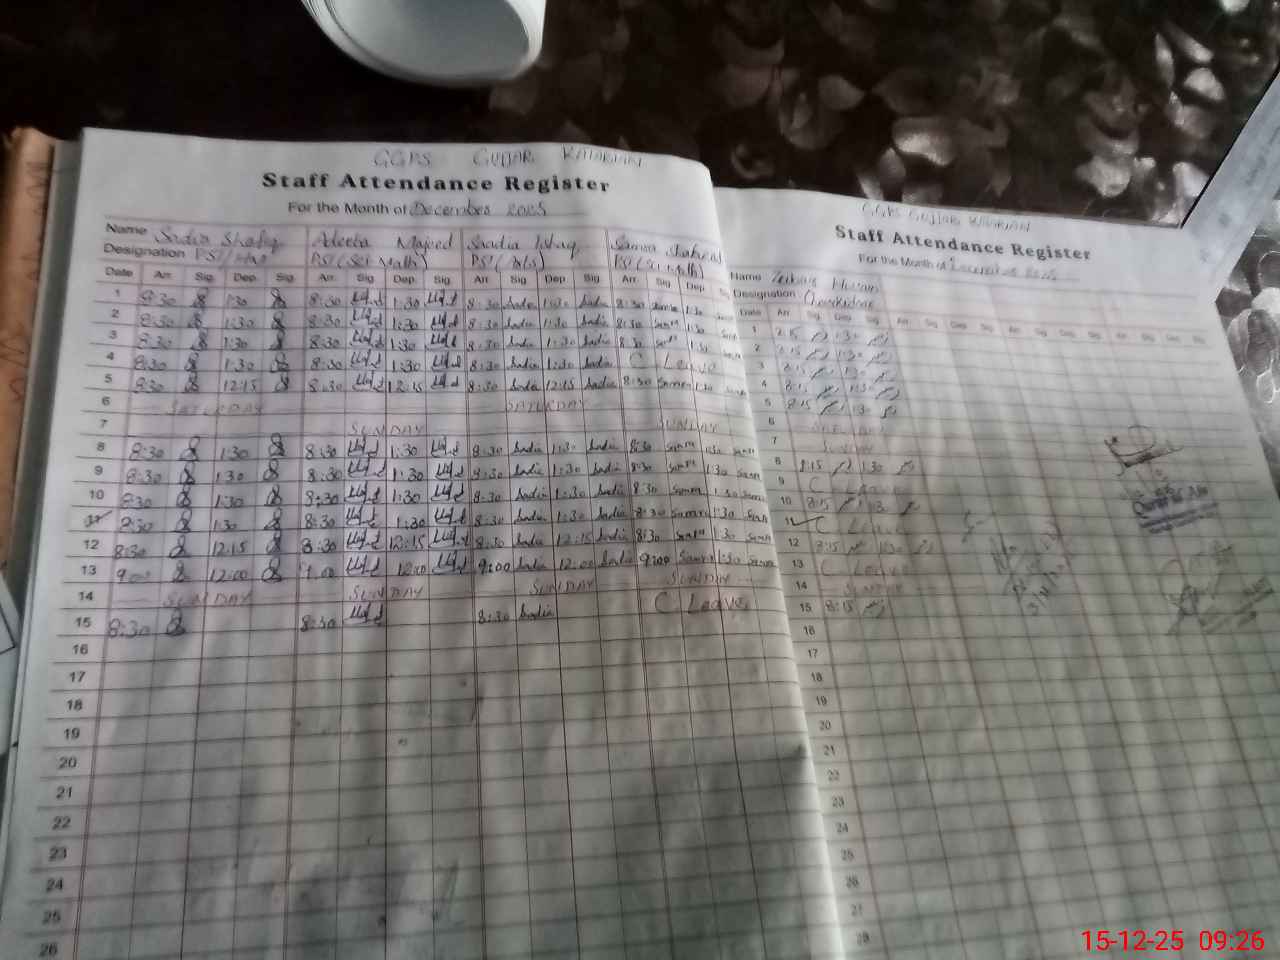 GGPS GUJJAR KATARIAN
Staff Attendance Register
For the Month of December 2025
Name Sadia Shafiq Adeeba Majeed Saadia Ishaq Samra
Designation PST/ PST (Sci-Math) PST (Arts) PST (Sci Math)
Date Arr. Sig. Dep. Sig. Arr. Sig. Dep. Sig. Arr. Sig. Dep. Sig. Arr. Sig. Dep.
1 8:30 1:30 8:30 1:30 8:30 Sadia 1:30 Sadia 8:30 Samra 1:30
2 8:30 1:30 8:30 1:30 8:30 Sadia 1:30 Sadia 8:30 Samra 1:30
3 8:30 1:30 8:30 1:30 8:30 Sadia 1:30 Sadia 8:30 Samra 1:30
4 8:30 1:30 8:30 1:30 8:30 Sadia 1:30 Sadia C Leave
5 8:30 12:15 8:30 12:15 8:30 Sadia 12:15 Sadia 8:30 Samra 1:30
6 SATURDAY SATURDAY
7 SUNDAY SUNDAY
8 8:30 1:30 8:30 1:30 8:30 Sadia 1:30 Sadia 8:30 Samra 1:30 Samra
9 8:30 1:30 8:30 1:30 8:30 Sadia 1:30 Sadia 8:30 Samra 1:30 Samra
10 8:30 1:30 8:30 1:30 8:30 Sadia 1:30 Sadia 8:30 Samra 1:30 Samra
11 8:30 1:30 8:30 1:30 8:30 Sadia 1:30 Sadia 8:30 Samra 1:30 Samra
12 8:30 12:15 8:30 12:15 8:30 Sadia 12:15 Sadia 8:30 Samra 1:30 Samra
13 9:00 12:00 9:00 12:00 9:00 Sadia 12:00 Sadia 9:00 Samra 1:30 Samra
14 SUNDAY SUNDAY SUNDAY SUNDAY
15 8:30 8:30 8:30 Sadia C Leave
16
17
18
19
20
21
22
23
24
25
26
GGPS GUJJAR KATARIAN
Staff Attendance Register
For the Month of December 2025
Name
Designation Chowkidar
Date Arr. Sig. Dep. Sig. Arr. Sig. Dep. Sig. Arr. Sig. Dep. Sig.
1 8:15 1:30
2 8:15 1:30
3 8:15 1:30
4 8:15 1:30
5 8:15 1:30
6 SATURDAY
7 SUNDAY
8 8:15 1:30
9 C Leave
10 8:15 1:30
11 C Leave
12 8:15 1:30
13 C Leave
14 SUNDAY
15 8:15
16
17
18
19
20
21
22
23
24
25
26
27
28
15-12-25 09:26